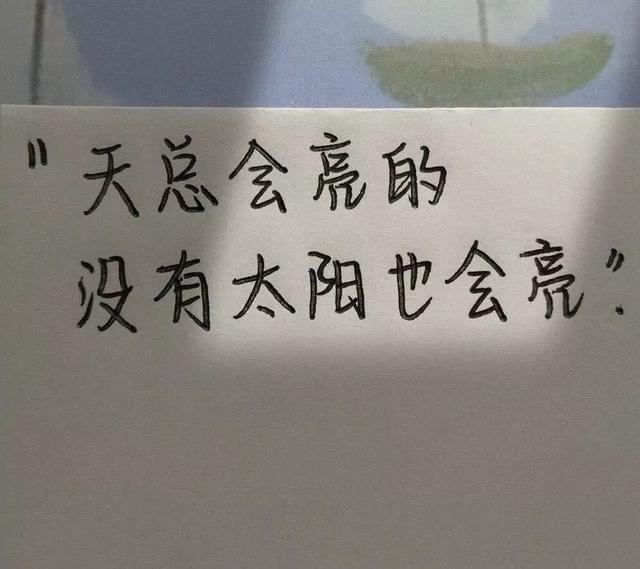 "天总会亮的
没有太阳也会亮".